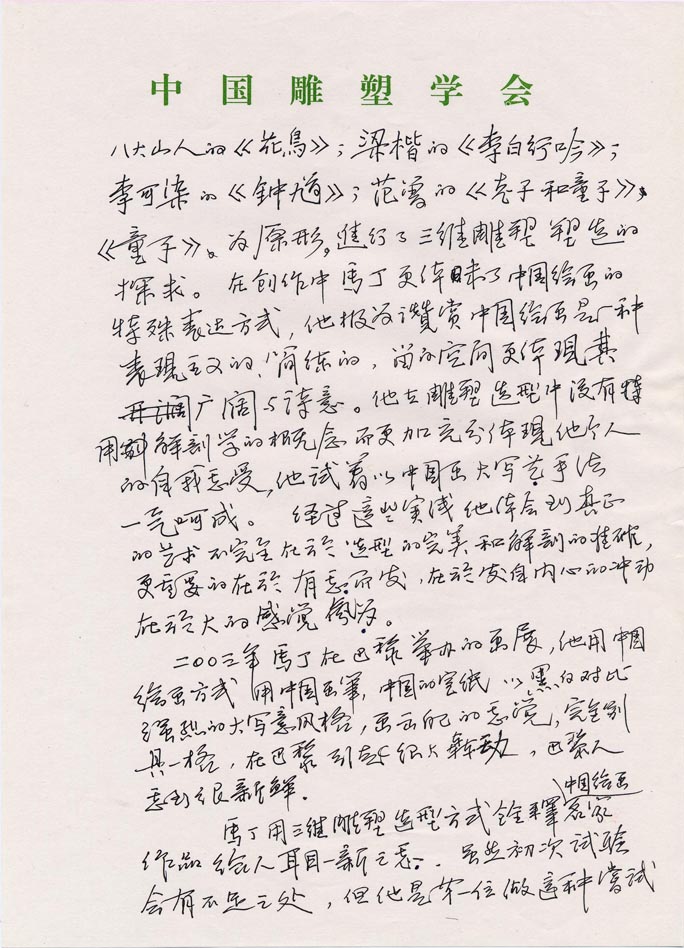 中国雕塑学会
八大山人的《花鳥》；梁楷的《李白行吟》；
李可染的《钟馗》；范曾的《老子和童子》，
《童子》。为原形，進行了三维雕塑塑造的
探求。在创作中馬丁更体味了中国绘画的
特殊表达方式，他极为讚赏中国绘画是一种
表现主义的、简练的，留的空间更体现其
广阔与诗意。他在雕塑造型中没有特
用解剖学的概念而更加充分体現他个人
的自我感受，他试着以中国画大写意手法
一气呵成。经过這些实践他体会到真正
的艺术不完全在於造型的完美和解剖的准确，
更重要的在於有感而发，在於发自内心的冲动
在於大的感觉
二00三年馬丁在巴黎举办的画展，他用中国
绘画方式用中国画筆，中国的宣纸以黑白对比
强烈的大写意风格，画出他的感觉，完全别
具一格，在巴黎引起很大轰动，巴黎人
感到很新鲜。
中国绘画
馬丁用三维雕塑造型方式诠釋名家
作品给人耳目一新之感。虽然初次试验
会有不足之处，但他是第一位做這种嘗試